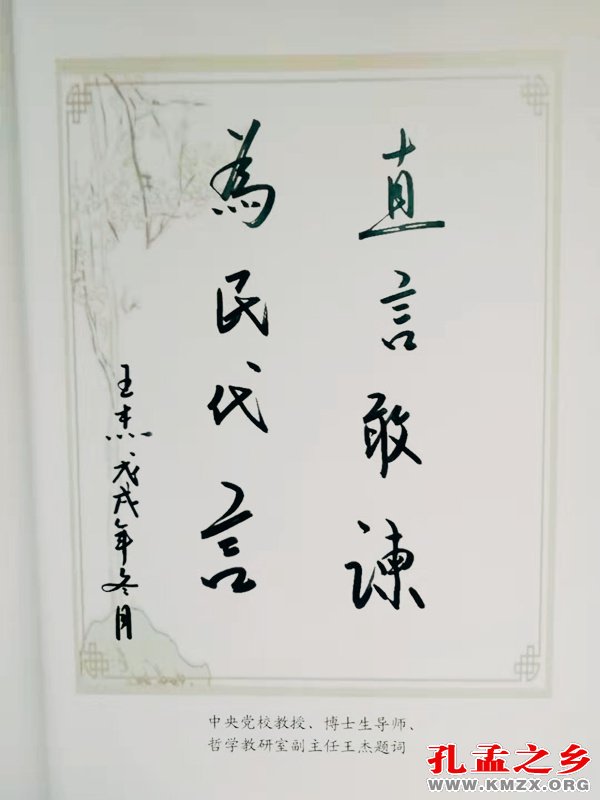 直言敢谏
為民代言
王杰戊戌年冬月
中央党校教授、博士生导师、
哲学教研室副主任王杰题词
孔孟之乡
WWW.KMZX.ORG